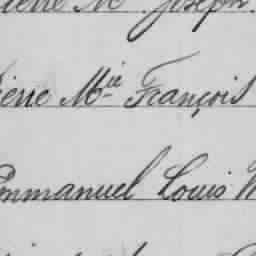 ierre Mie Joseph
ierre Mie François
Emmanuel Louis M